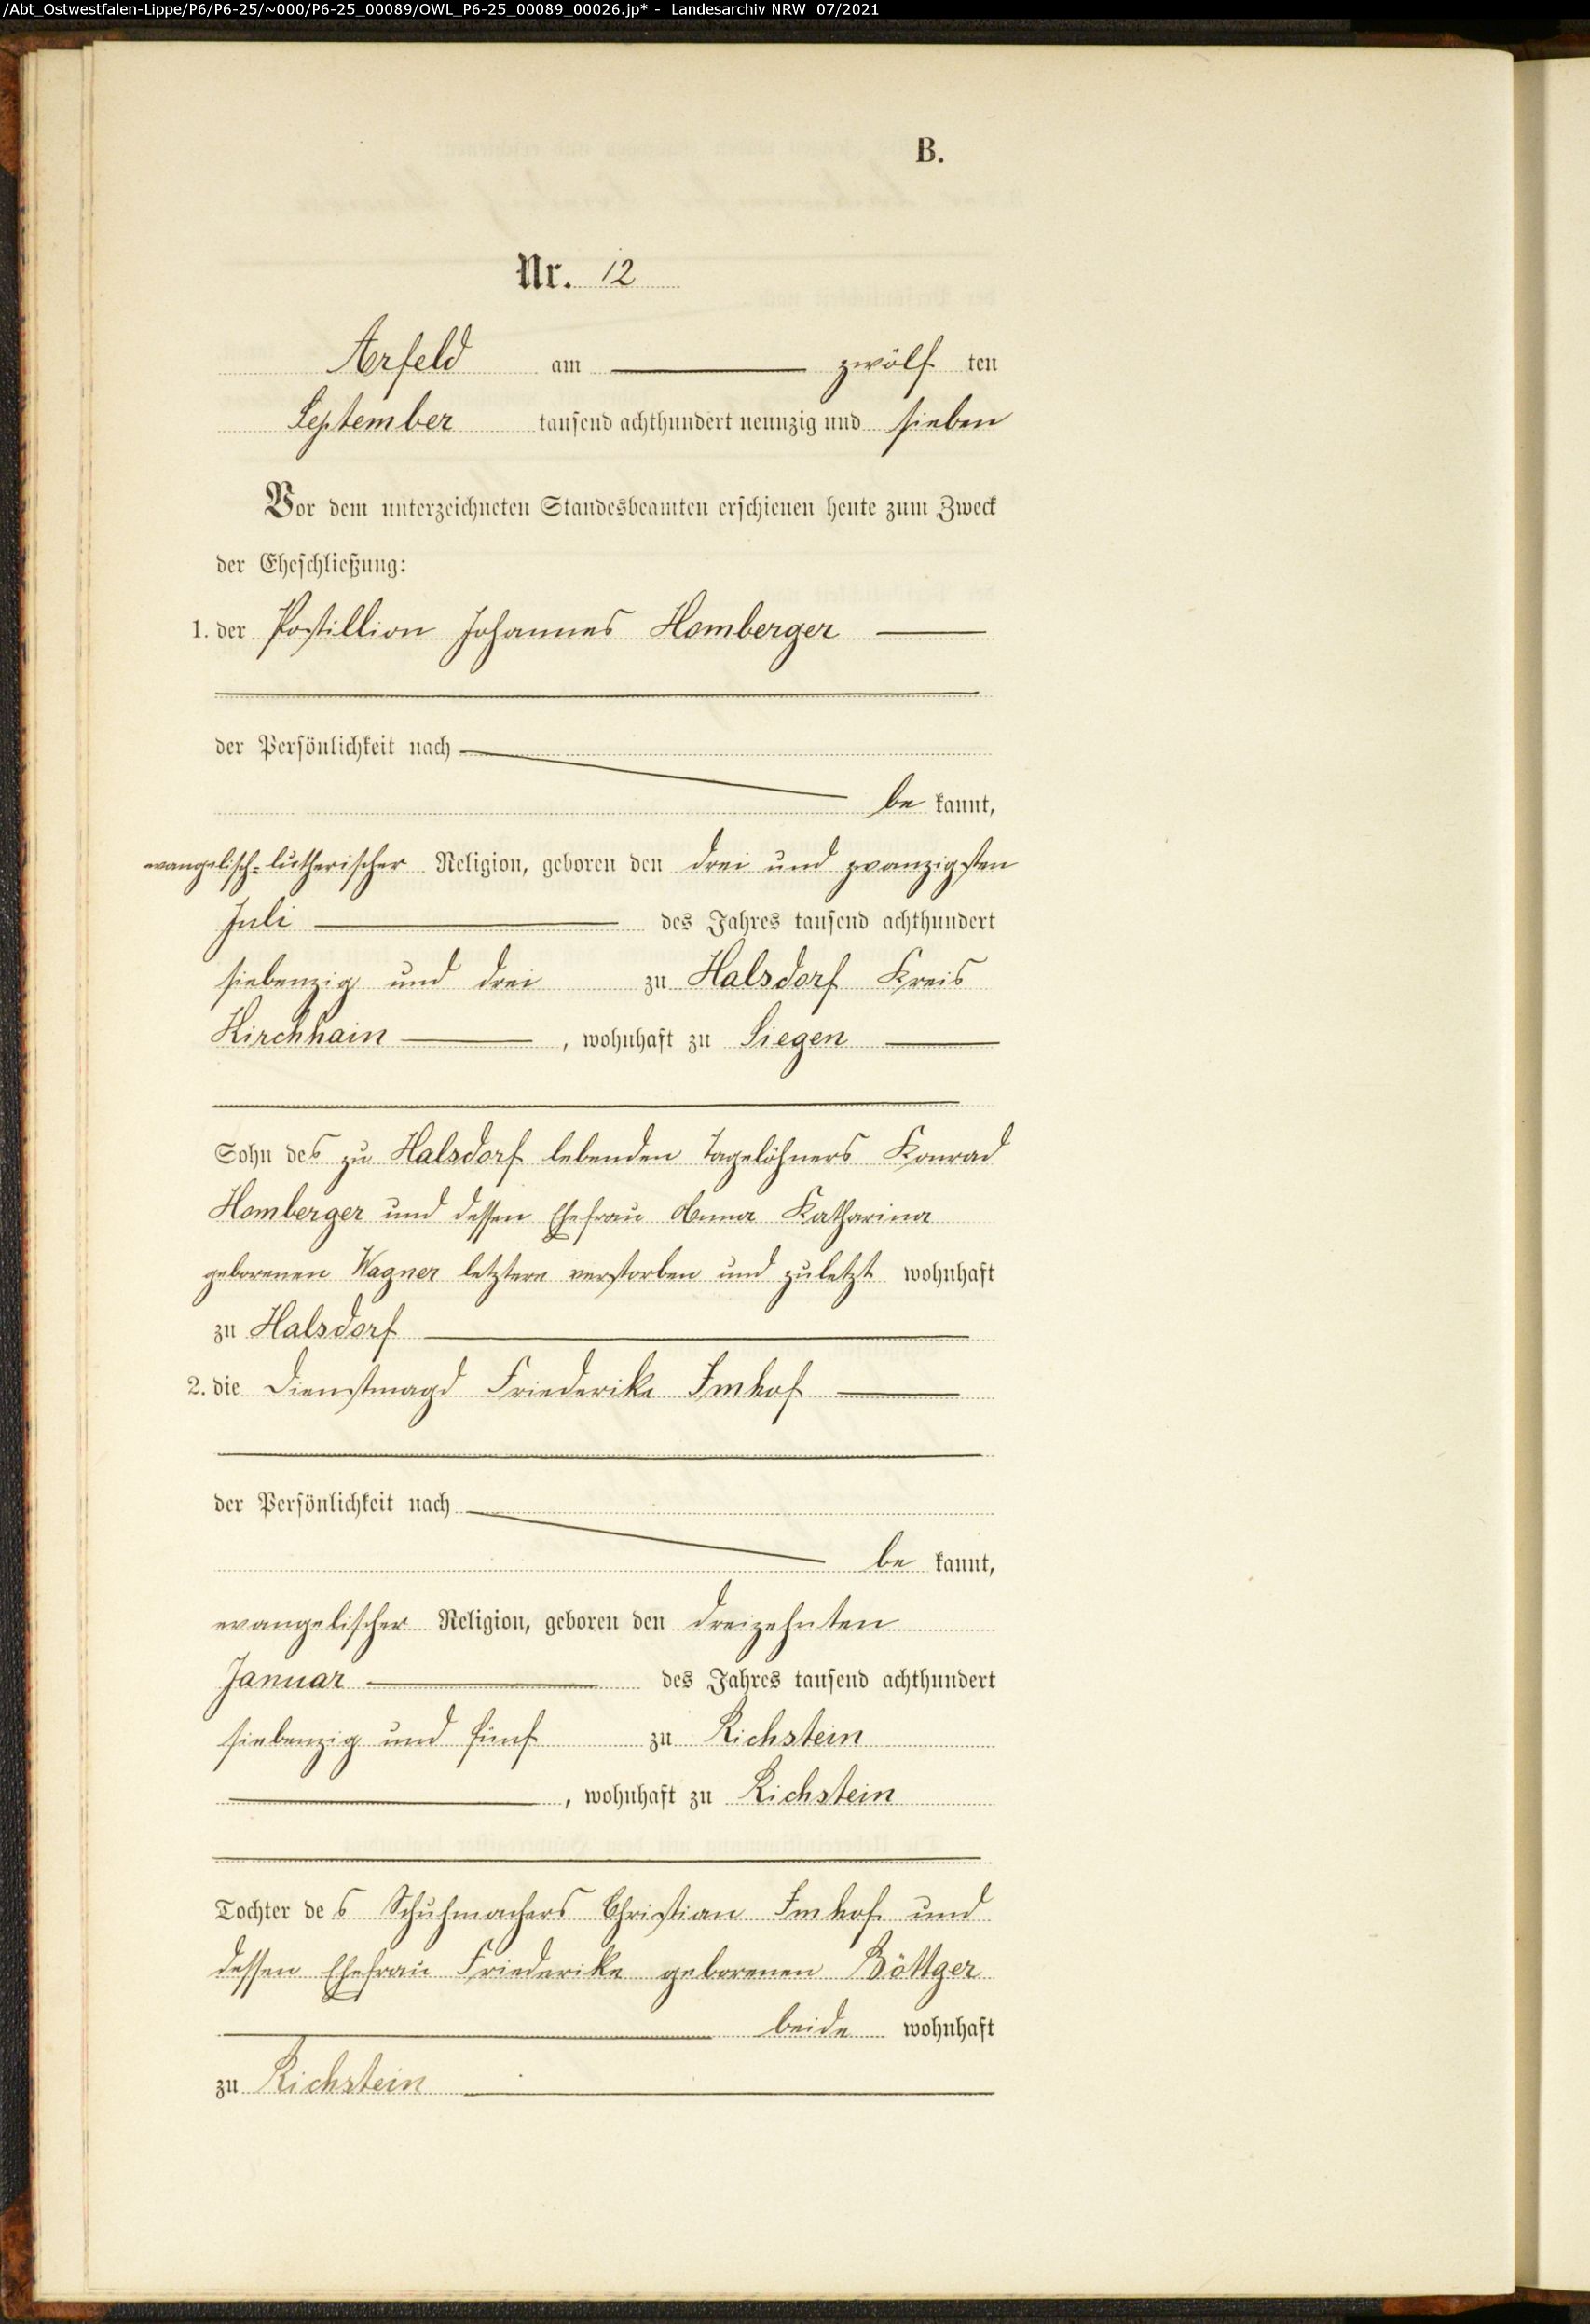 /Abt_Ostwestfalen-Lippe/P6/P6-25/~000/P6-25_00089/OWL_P6-25_00089_00026.jp* - Landesarchiv NRW 07/2021
B.
Nr. 12
Arfeld am zwölf ten
September tausend achthundert neunzig und sieben
Vor dem unterzeichneten Standesbeamten erschienen heute zum Zweck
der Eheschließung:
1. der Postillion Johannes Homberger
der Persönlichkeit nach
be kannt,
evangelisch-lutherischer Religion, geboren den drei und zwanzigsten
Juli des Jahres tausend achthundert
siebenzig und drei zu Halsdorf Kreis
Kirchhain, wohnhaft zu Siegen
Sohn des zu Halsdorf lebenden Tagelöhners Konrad
Homberger und dessen Ehefrau Anna Katharina
geborenen Wagner letztere verstorben und zuletzt wohnhaft
zu Halsdorf
2. die Dienstmagd Friederike Imhof
der Persönlichkeit nach
be kannt,
evangelischer Religion, geboren den dreizehnten
Januar des Jahres tausend achthundert
siebenzig und fünf zu Richstein
, wohnhaft zu Richstein
Tochter des Schuhmachers Christian Imhof und
dessen Ehefrau Friederike geborenen Böttger
beide wohnhaft
zu Richstein